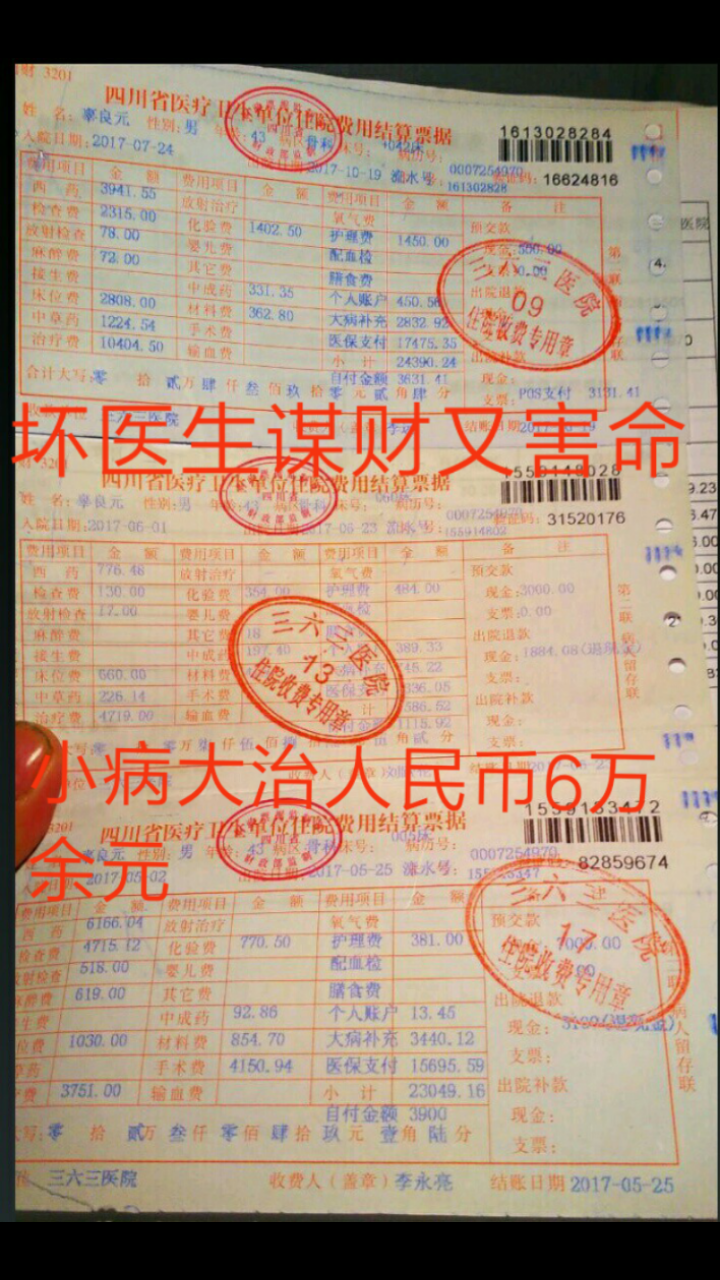 财 3201
四川省医疗卫生单位住院费用结算票据
1613028284
姓 名: 辜良元 性别: 男 年龄: 43 病区 骨科 床号: 1042床 病历号: 0007254970
入院日期: 2017-07-24 出院日期 2017-10-19 流水号: 161302828 验证码: 16624816
费用项目 金 额 费用项目 金 额 费用项目 金 额 备 注
西 药 3941.55 放射治疗 氧气费 预交款
检查费 2315.00 化验费 1402.50 护理费 1450.00 现金: 500.00
放射检查 78.00 婴儿费 配血检 0.00
麻醉费 72.00 其它费 膳食费 出院退款
接生费 中成药 331.35 个人账户 450.56
床位费 2808.00 材料费 362.80 大病补充 2832.92
中草药 1224.54 手术费 医保支付 17475.35 出院补款
治疗费 10404.50 输血费 小 计 24390.24 现金:
合计大写: 零 拾 贰万肆仟叁佰玖拾零元贰角肆分 自付金额 3631.41 支票: POS支付 3131.41
三六三医院 09 住院收费专用章
第二联
三六三医院 结账日期 2017-10-19
坏医生谋财又害命
3201
四川省医疗卫生单位住院费用结算票据
1559148028
姓 名: 辜良元 性别: 男 年龄: 43 病区 骨科 床号: 病历号: 0007254970
入院日期: 2017-06-01 2017-06-23 流水号: 155914802 验证码: 31520176
费用项目 金 额 费用项目 金 额 费用项目 金 额 备 注
西 药 776.48 放射治疗 氧气费 预交款
检查费 130.00 化验费 354.00 护理费 484.00 现金: 3000.00
放射检查 17.00 婴儿费 支票: 0.00
麻醉费 其它费 18 出院退款
接生费 中成药 197.40 389.33 现金: 1884.08(退现金)
床位费 660.00 材料费 支票:
中草药 226.14 手术费 出院补款
治疗费 4719.00 输血费 现金:
1115.92 支票:
三六三医院 13 住院收费专用章
第二联 病人留存联
小病大治人民币6万
余元
3201
四川省医疗卫生单位住院费用结算票据
1559133472
辜良元 性别: 男 年龄: 43 病区 骨科 床号: 005床 病历号: 0007254970
2017-05-02 2017-05-25 流水号: 82859674
费用项目 金 额 费用项目 金 额 费用项目 金 额
西 药 6166.04 放射治疗 氧气费 预交款
检查费 4715.12 化验费 770.50 护理费 381.00
放射检查 518.00 婴儿费 配血检
麻醉费 619.00 其它费 膳食费 出院退款
接生费 中成药 92.86 个人账户 13.45 现金:
床位费 1030.00 材料费 854.70 大病补充 3440.12 支票:
中草药 手术费 4150.94 医保支付 15695.59 出院补款
3751.00 输血费 小 计 23049.16 现金:
大写: 零 拾 贰万叁仟零佰肆拾玖元壹角陆分 自付金额 3900 支票:
三六三医院 17 住院收费专用章
病人留存联
三六三医院 收费人(盖章) 李永亮 结账日期 2017-05-25